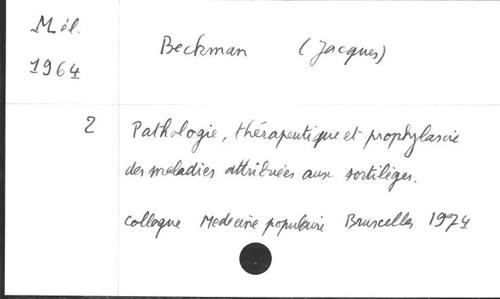 Mél. Beckman (Jacques)
1964
2 Pathologie, thérapeutique et prophylaxie
des maladies attribuées aux sortilèges.
Colloque Medecine populaire Bruxelles 1974